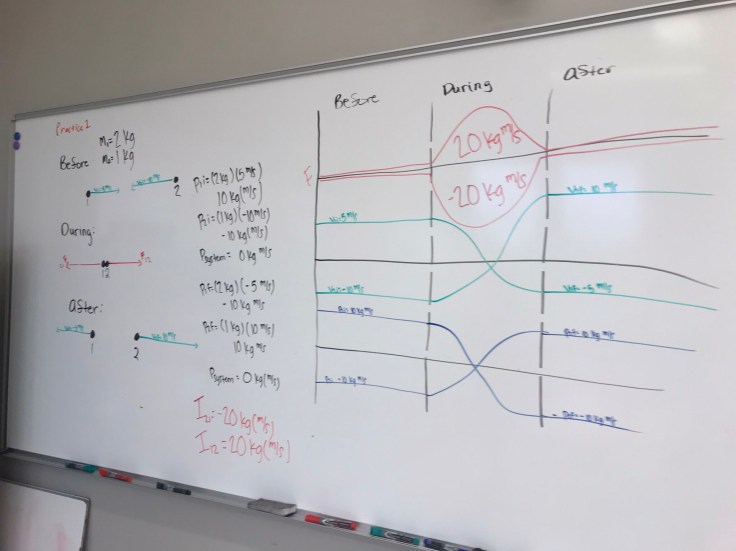 Practice 1
m₁=2 kg
Before: m₂=1 kg
1
2
P₁i=(2kg)(5m/s)
10 kg(m/s)
P₂i=(1kg)(-10m/s)
-10 kg(m/s)
Psystem = 0 kg m/s
During:
12
P₁f=(2kg)(-5 m/s)
-10 kg(m/s)
P₂f=(1kg)(10m/s)
10 kg(m/s)
Psystem = 0 kg(m/s)
After:
1
2
I₂₁=-20 kg(m/s)
I₁₂=20 kg(m/s)
Before
During
After
F
20 kg m/s
-20 kg m/s
V₁i=5 m/s
V₂i=-10 m/s
V₂f= 10 m/s
V₁f= -5 m/s
P₁i= 10 kg m/s
P₂i -10 kg m/s
P₂f= 10 kg m/s
P₁f= -10 kg m/s